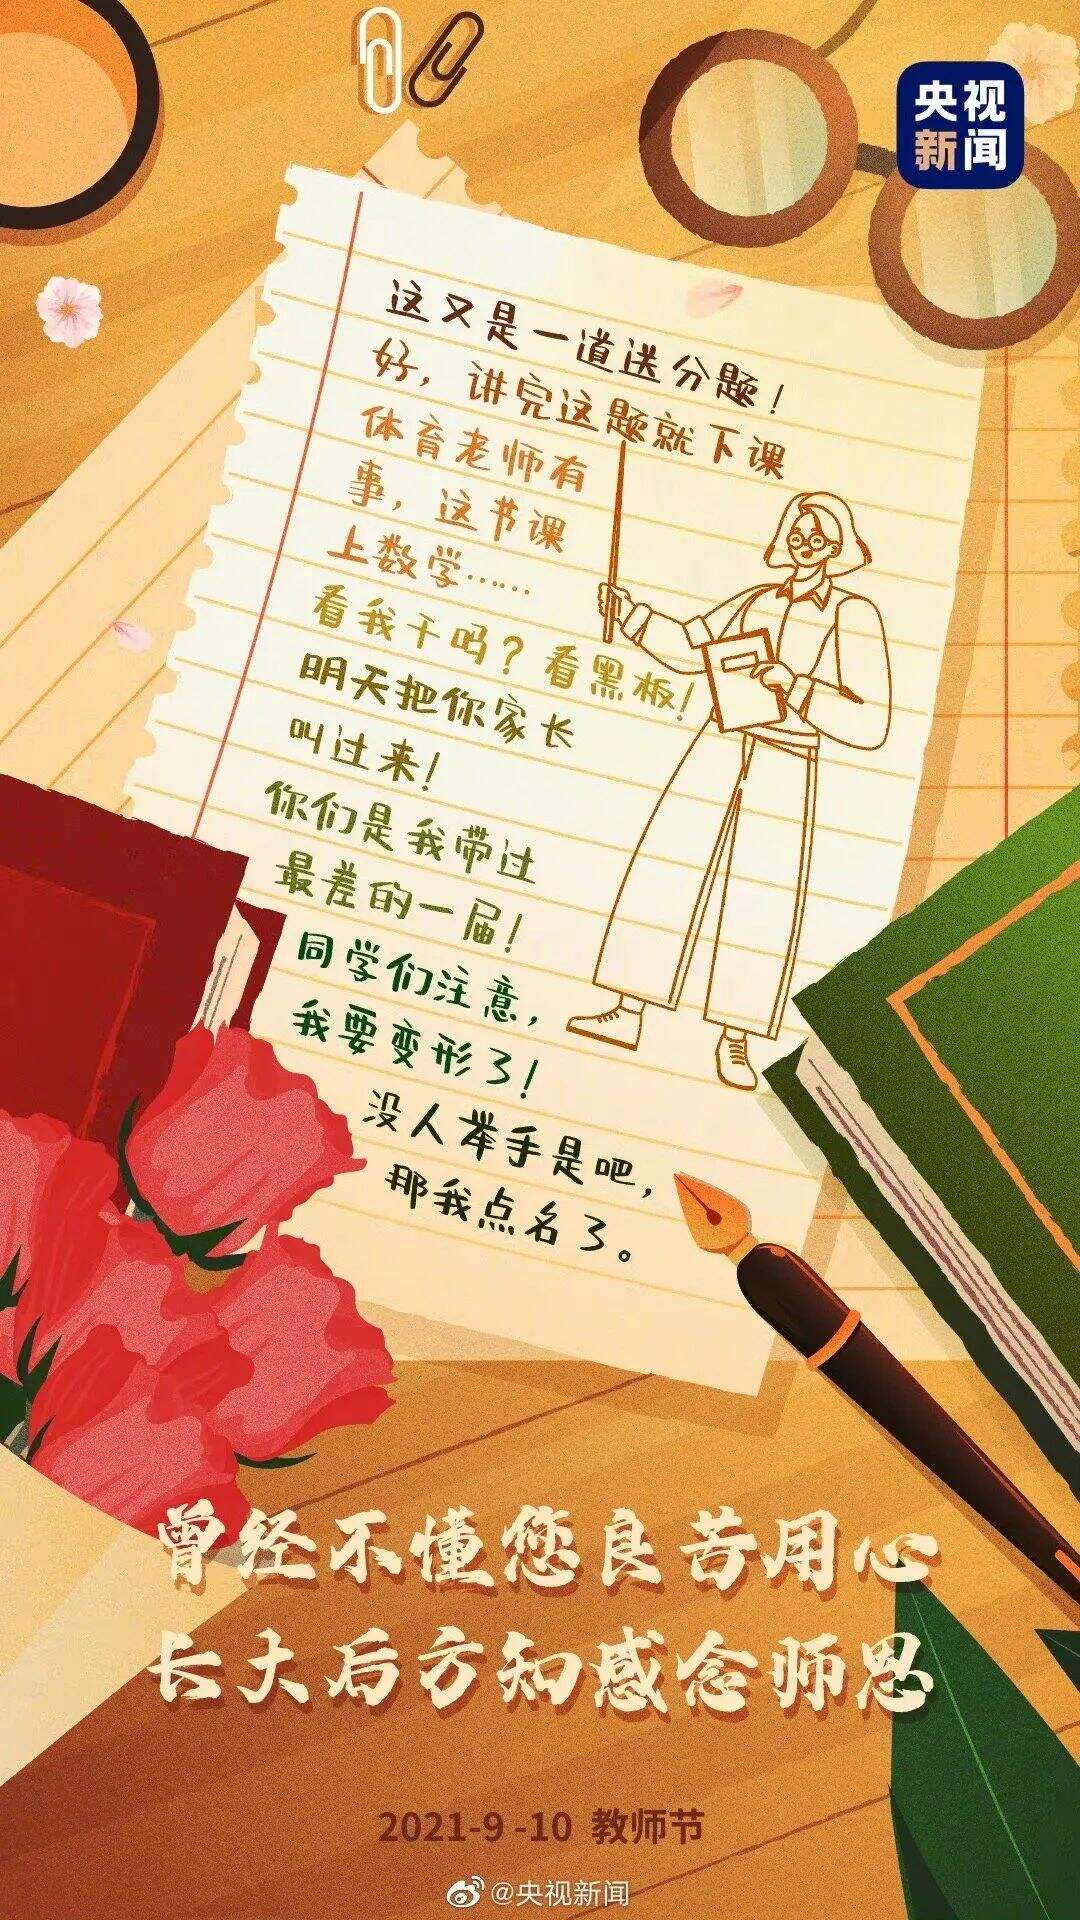 央视
新闻
这又是一道送分题！
好，讲完这题就下课
体育老师有
事，这节课
上数学……
看我干吗？看黑板！
明天把你家长
叫过来！
你们是我带过
最差的一届！
同学们注意，
我要变形了！
没人举手是吧，
那我点名了。
曾经不懂您良苦用心
长大后方知感念师恩
2021-9 -10 教师节
@央视新闻